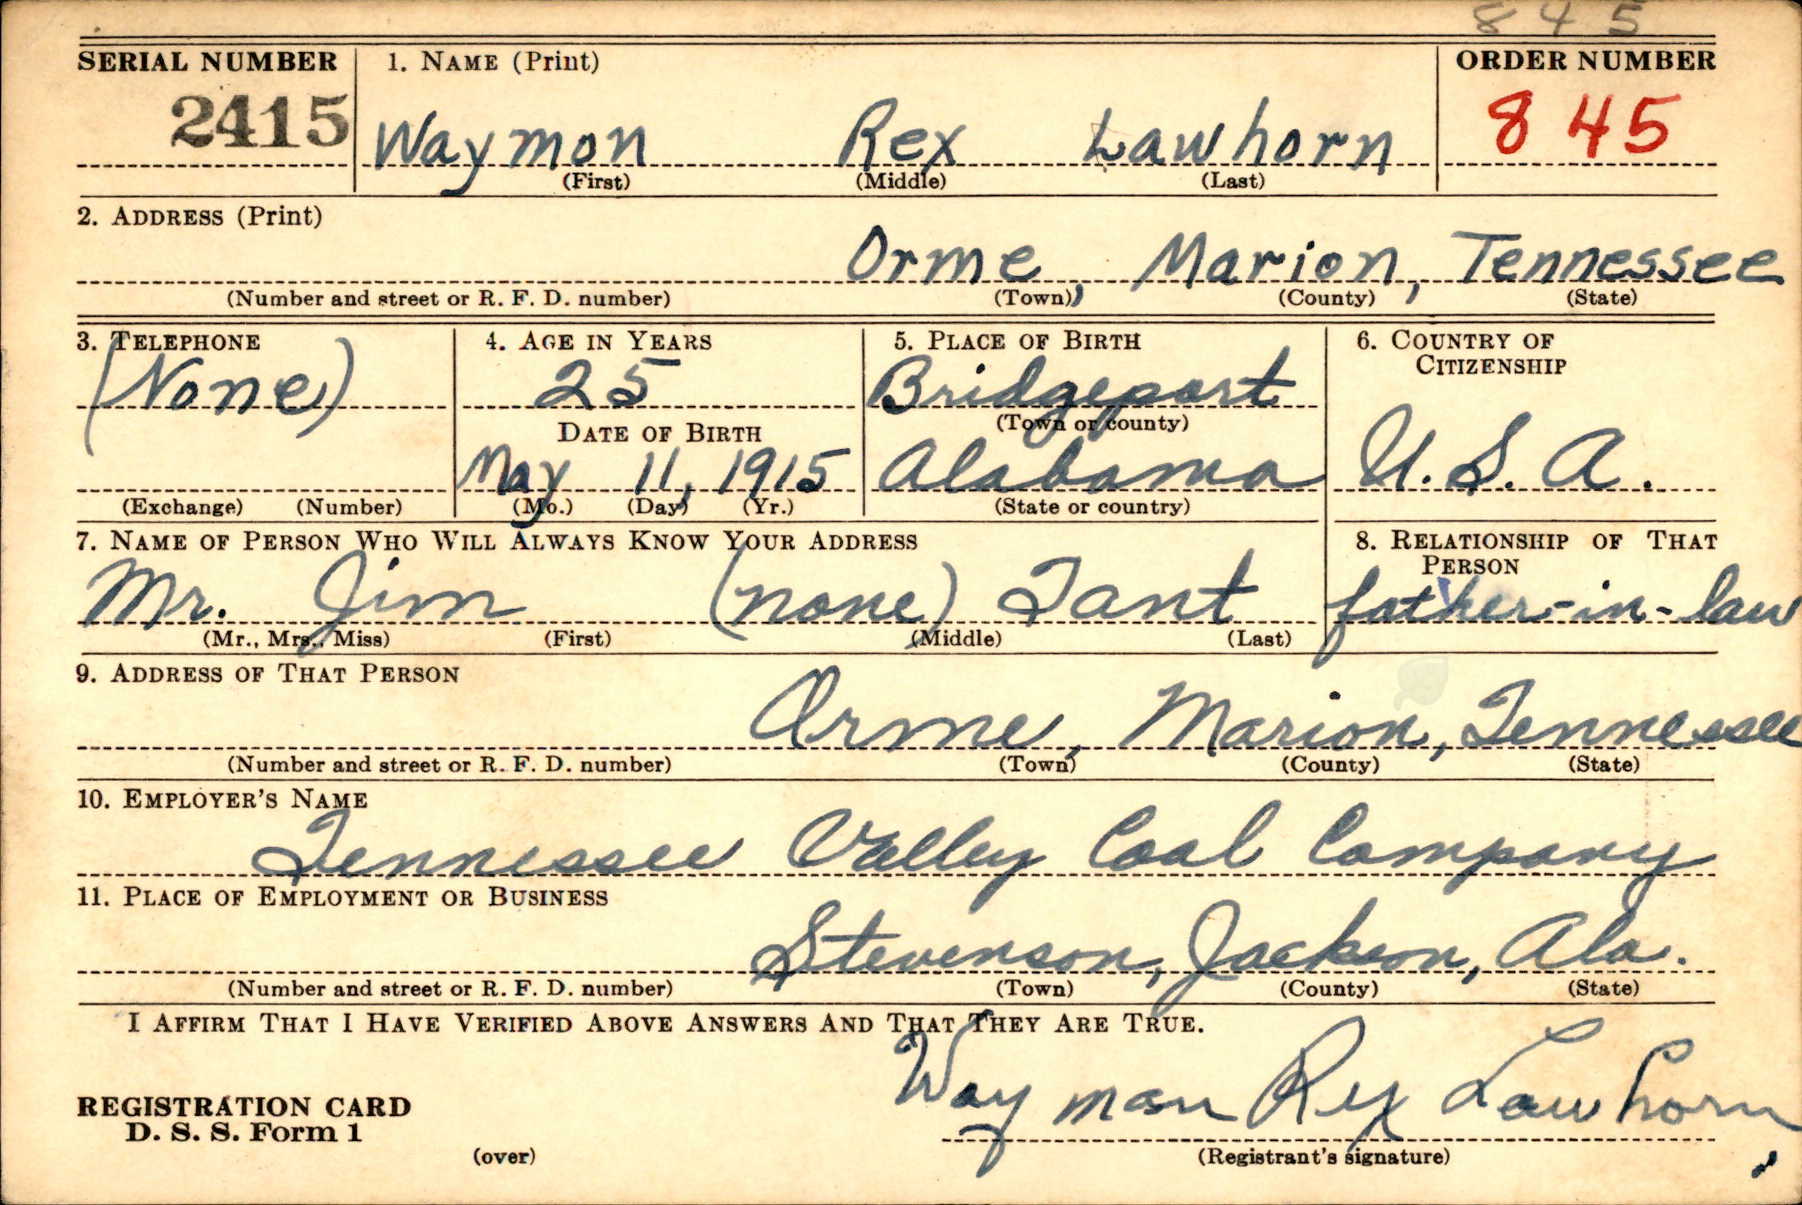 845
SERIAL NUMBER 1. NAME (Print) ORDER NUMBER
2415 Waymon Rex Lawhorn 845
(First) (Middle) (Last)
2. ADDRESS (Print)
Orme, Marion, Tennessee
(Number and street or R. F. D. number) (Town) (County) (State)
3. TELEPHONE 4. AGE IN YEARS 5. PLACE OF BIRTH 6. COUNTRY OF
CITIZENSHIP
(None) 25 Bridgeport
(Town or county)
DATE OF BIRTH
May 11, 1915 Alabama U.S.A.
(Exchange) (Number) (Mo.) (Day) (Yr.) (State or country)
7. NAME OF PERSON WHO WILL ALWAYS KNOW YOUR ADDRESS 8. RELATIONSHIP OF THAT
PERSON
Mr. Jim (none) Tant father-in-law
(Mr., Mrs., Miss) (First) (Middle) (Last)
9. ADDRESS OF THAT PERSON
Orme, Marion, Tennessee
(Number and street or R. F. D. number) (Town) (County) (State)
10. EMPLOYER'S NAME
Tennessee Valley Coal Company
11. PLACE OF EMPLOYMENT OR BUSINESS
Stevenson, Jackson, Ala.
(Number and street or R. F. D. number) (Town) (County) (State)
I AFFIRM THAT I HAVE VERIFIED ABOVE ANSWERS AND THAT THEY ARE TRUE.
Way mon Rex Lawhorn
REGISTRATION CARD
D. S. S. Form 1
(over) (Registrant's signature)